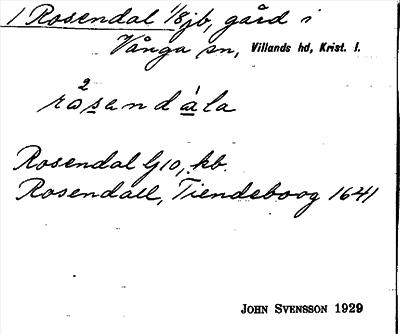 1 Rosendal 1/8 jb, gård i
Vånga sn, Villands hd, Krist. l.
rå²s̲endà̲la
Rosendal G10, kb.
Rosendall, Tiendeboog 1641
JOHN SVENSSON 1929